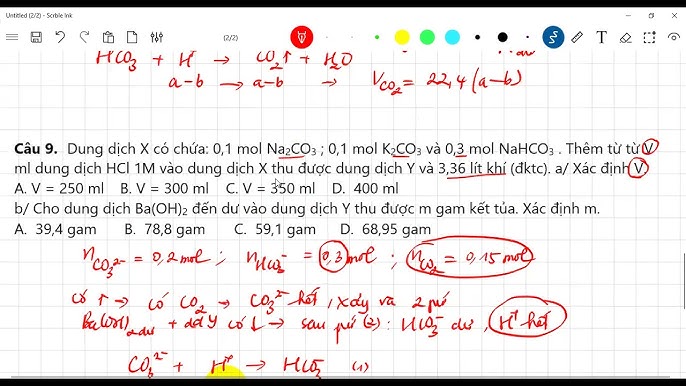 Untitled (2/2) - Scrble Ink
(2/2)
HCO₃⁻ + H⁺ → CO₂↑ + H₂O
a-b → a-b → V_CO₂ = 22,4 (a-b)
Câu 9. Dung dịch X có chứa: 0,1 mol Na₂CO₃ ; 0,1 mol K₂CO₃ và 0,3 mol NaHCO₃ . Thêm từ từ V
ml dung dịch HCl 1M vào dung dịch X thu được dung dịch Y và 3,36 lít khí (đktc). a/ Xác định V
A. V = 250 ml B. V = 300 ml C. V = 350 ml D. 400 ml
b/ Cho dung dịch Ba(OH)₂ đến dư vào dung dịch Y thu được m gam kết tủa. Xác định m.
A. 39,4 gam B. 78,8 gam C. 59,1 gam D. 68,95 gam
n_CO₃²⁻ = 0,2 mol ; n_HCO₃⁻ = 0,3 mol ; n_CO₂ = 0,15 mol
có ↑ → có CO₂ → CO₃²⁻ hết, xảy ra 2 pứ
Ba(OH)₂ dư + dd Y có ↓ → sau pứ (2) : HCO₃⁻ dư, H⁺ hết
CO₃²⁻ + H⁺ → HCO₃⁻ (1)